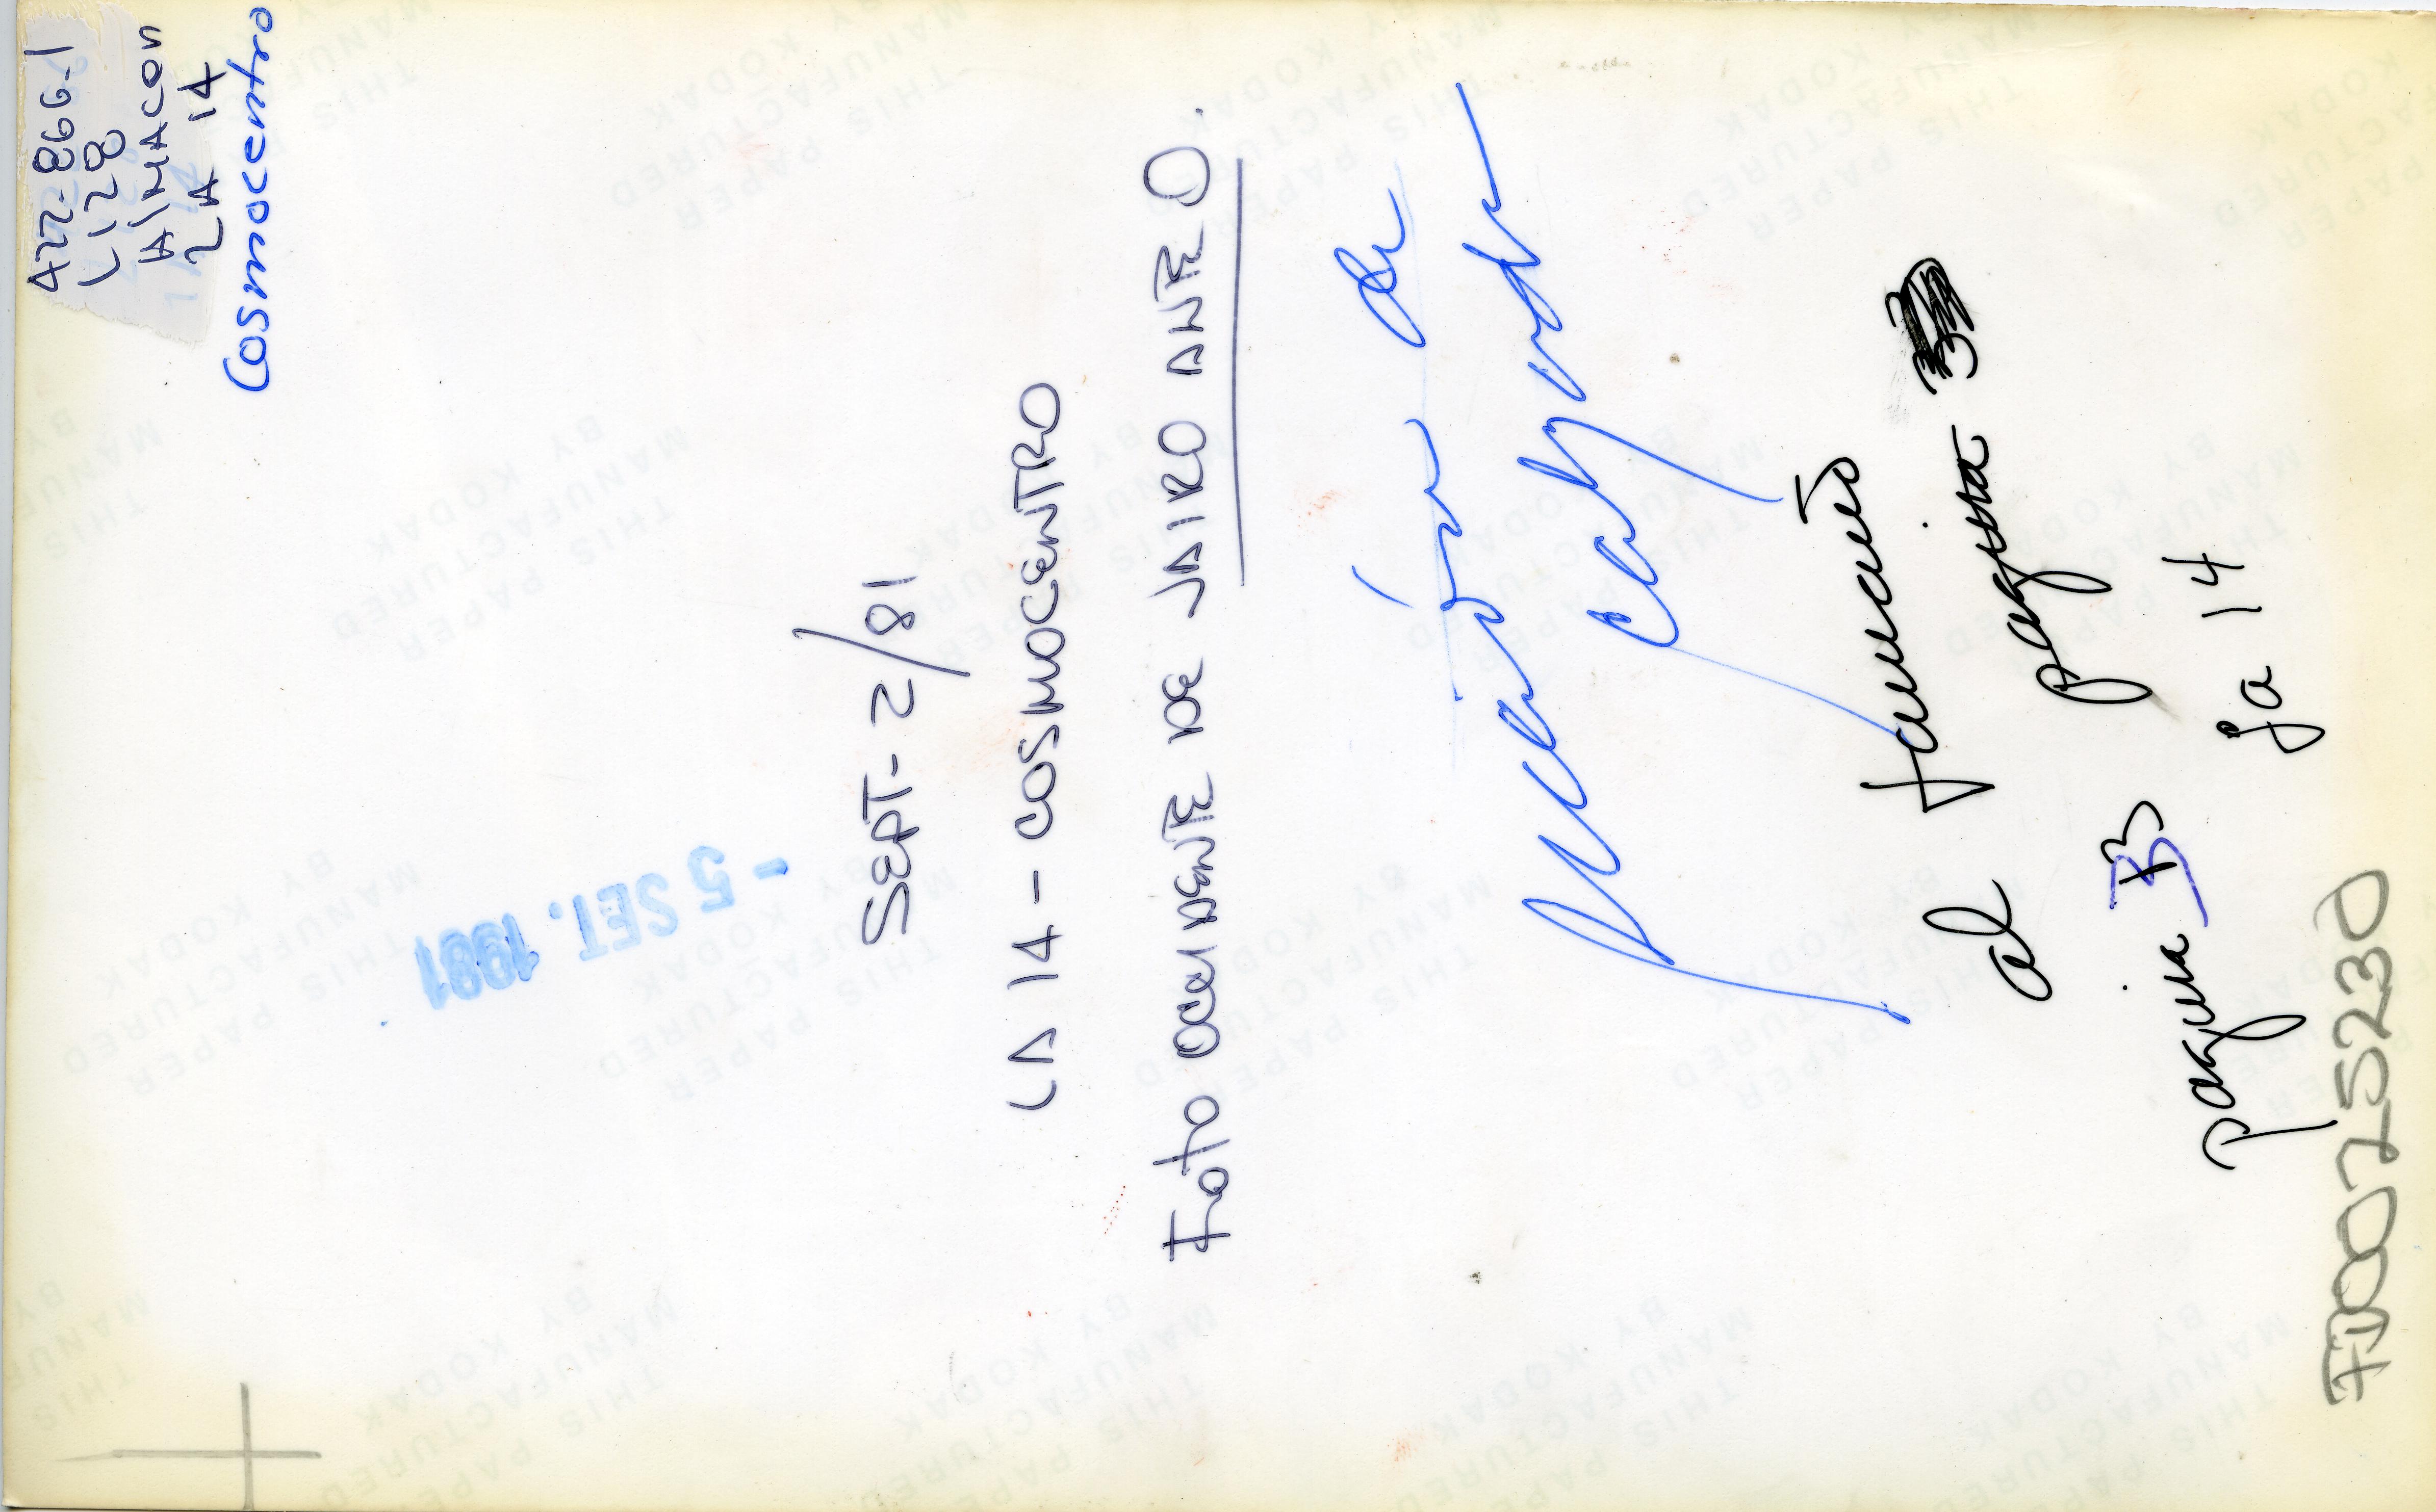 A22-866-1
L128
AlMACen
LA 14
Cosmocentro
- 5 SET. 1981
SEPT- 2/81
LA 14 - COSMOCENTRO
Foto OCCIDENTE DE JAIRO ANTE O.
de
al tamaño
pagina
pagina B
ja 14
F0025230
THIS PAPER
MANUFACTURED
BY KODAK